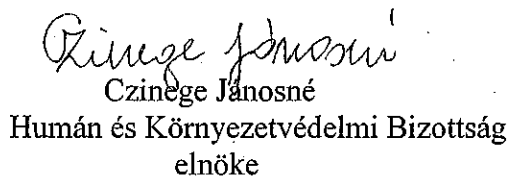 Czinege Jánosné
Czinege Jánosné
Humán és Környezetvédelmi Bizottság
elnöke